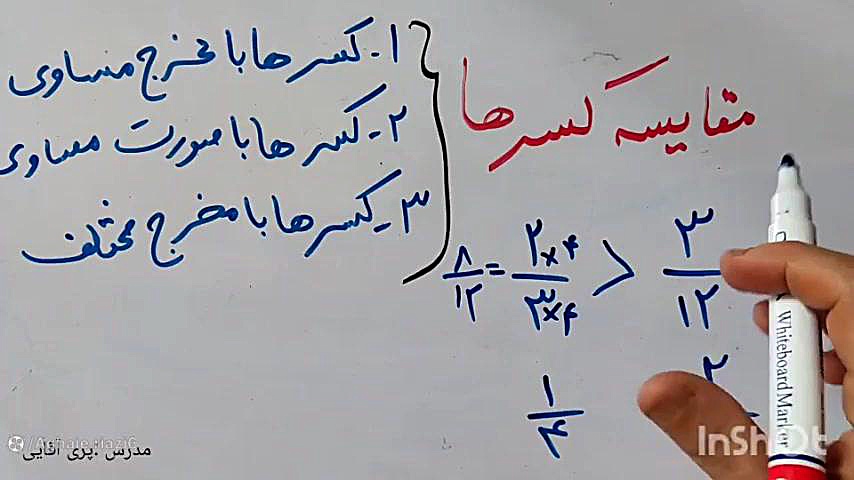 مقایسه کسرها
۱- کسرها با مخرج مساوی
۲- کسرها با صورت مساوی
۳- کسرها با مخرج مختلف
۸/۱۲ = ۲×۴/۳×۴ > ۳/۱۲
۱/۴ ۲
Whiteboard Marker
InShOt
مدرس :پری آقایی